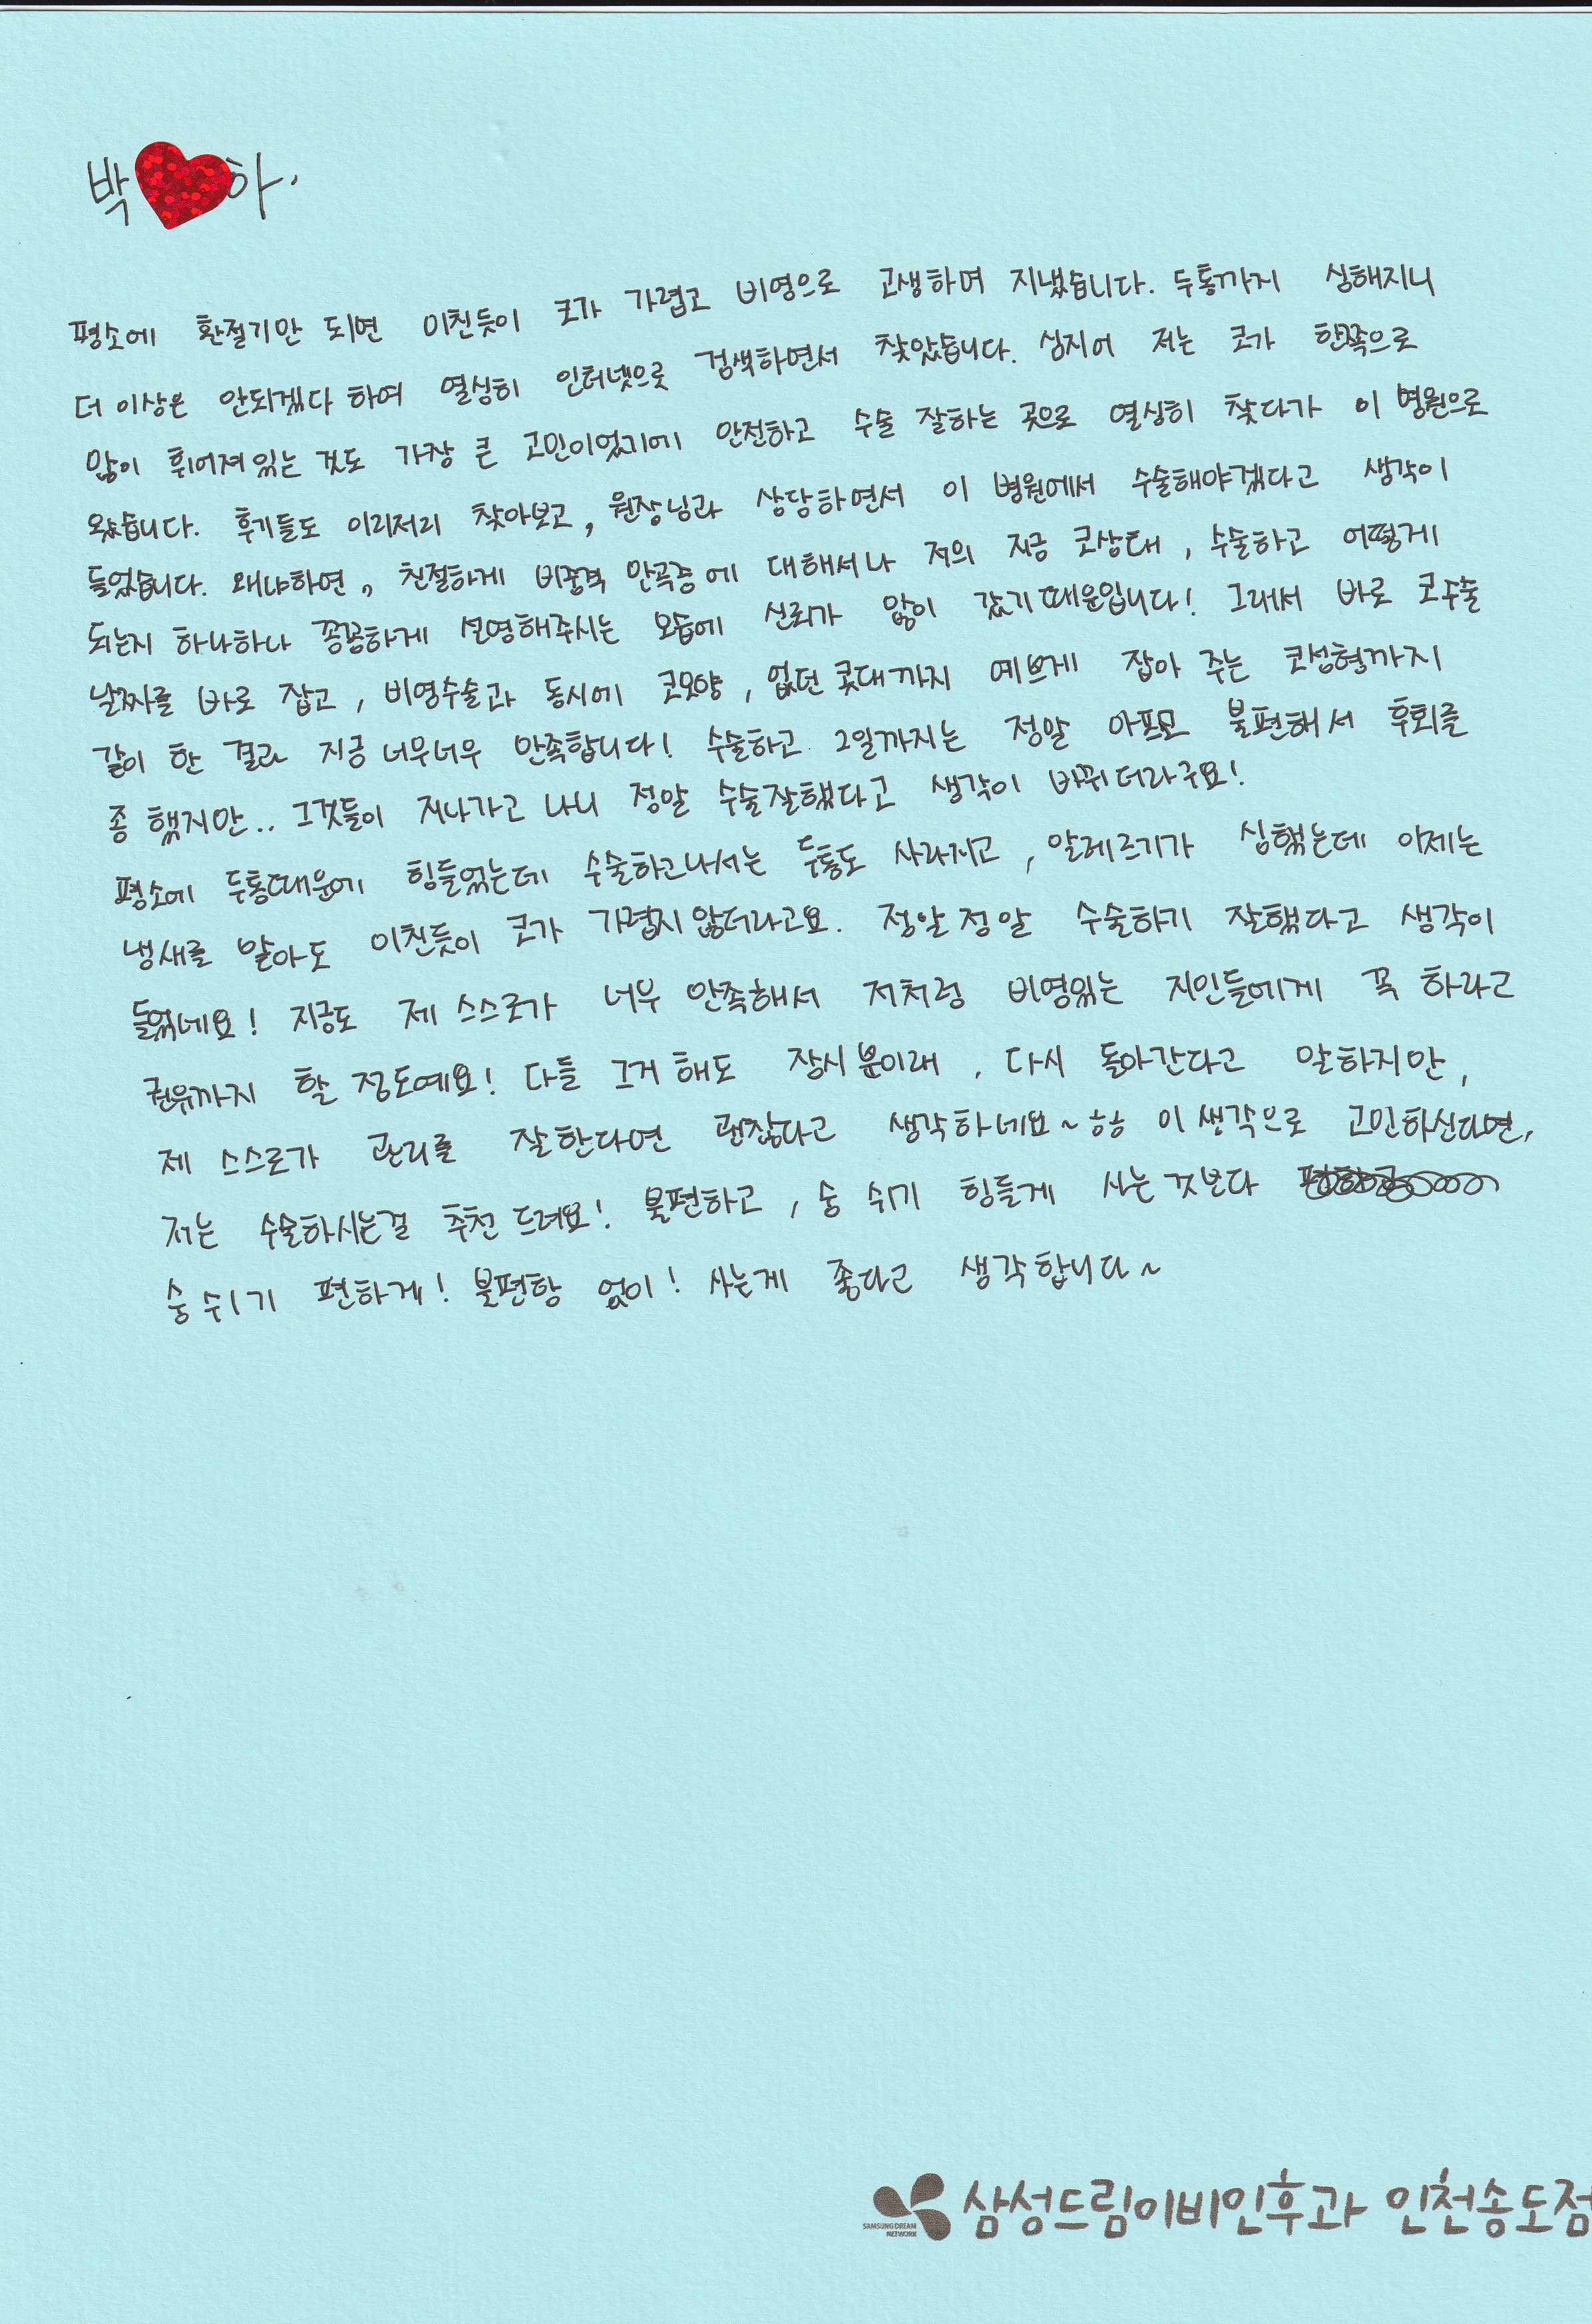 박 하.
평소에 환절기만 되면 미친듯이 코가 가렵고 비염으로 고생하며 지냈습니다. 두통까지 심해지니
더 이상은 안되겠다 하여 열심히 인터넷으로 검색하면서 찾았습니다. 심지어 저는 코가 한쪽으로
많이 휘어져 있는 것도 가장 큰 고민이었기에 안전하고 수술 잘하는 곳으로 열심히 찾다가 이 병원으로
왔습니다. 후기들도 이리저리 찾아보고, 원장님과 상담하면서 이 병원에서 수술해야겠다고 생각이
들었습니다. 왜냐하면, 친절하게 비중격 만곡증에 대해서나 저의 지금 코상태, 수술하고 어떻게
되는지 하나하나 꼼꼼하게 설명해주시는 모습에 신뢰가 많이 갔기 때문입니다! 그래서 바로 코수술
날짜를 바로 잡고, 비염수술과 동시에 코모양, 없던 콧대까지 예쁘게 잡아 주는 코성형까지
같이 한 결과 지금 너무너무 만족합니다! 수술하고 2일까지는 정말 아프고 불편해서 후회를
좀 했지만.. 그것들이 지나가고 나니 정말 수술잘했다고 생각이 바뀌더라구요!
평소에 두통때문에 힘들었는데 수술하고나서는 두통도 사라지고, 알레르기가 심했는데 이제는
냄새를 맡아도 미친듯이 코가 가렵지 않더라고요. 정말정말 수술하기 잘했다고 생각이
들었네요! 지금도 제 스스로가 너무 만족해서 저처럼 비염있는 지인들에게 꼭 하라고
권유까지 할 정도예요! 다들 그거 해도 잠시 뿐이래, 다시 돌아간다고 말하지만,
제 스스로가 관리를 잘한다면 괜찮다고 생각하네요~ㅎㅎ 이 생각으로 고민하신다면,
저는 수술하시는걸 추천 드려요! 불편하고, 숨 쉬기 힘들게 사는 것보다
숨 쉬기 편하게! 불편함 없이! 사는게 좋다고 생각합니다~
SAMSUNG DREAM NETWORK 삼성드림이비인후과 인천송도점